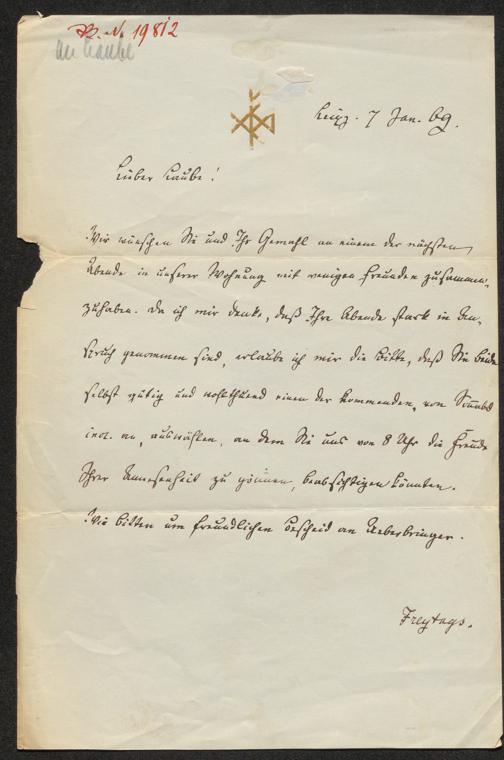 B. N. 19812
An Laube
Leipz. 7 Jan. 69.
Lieber Laube!
Wir wünschen Sie und Ihr Gemahl an einem der nächsten
Abende in unserer Wohnung mit wenigen Freunden zusammen-
zuhaben. Da ich mir denke, daß Ihre Abende stark in An-
spruch genommen sind, erlaube ich mir die Bitte, daß Sie beide
selbst gütig und wohlthuend einen der kommenden, von Sonnabd
incl. an, auswählen, an dem Sie uns von 8 Uhr die Freude
Ihrer Anwesenheit zu gönnen, beabsichtigen könnten.
Wir bitten um freundlichen Bescheid an Ueberbringer.
Freytags.